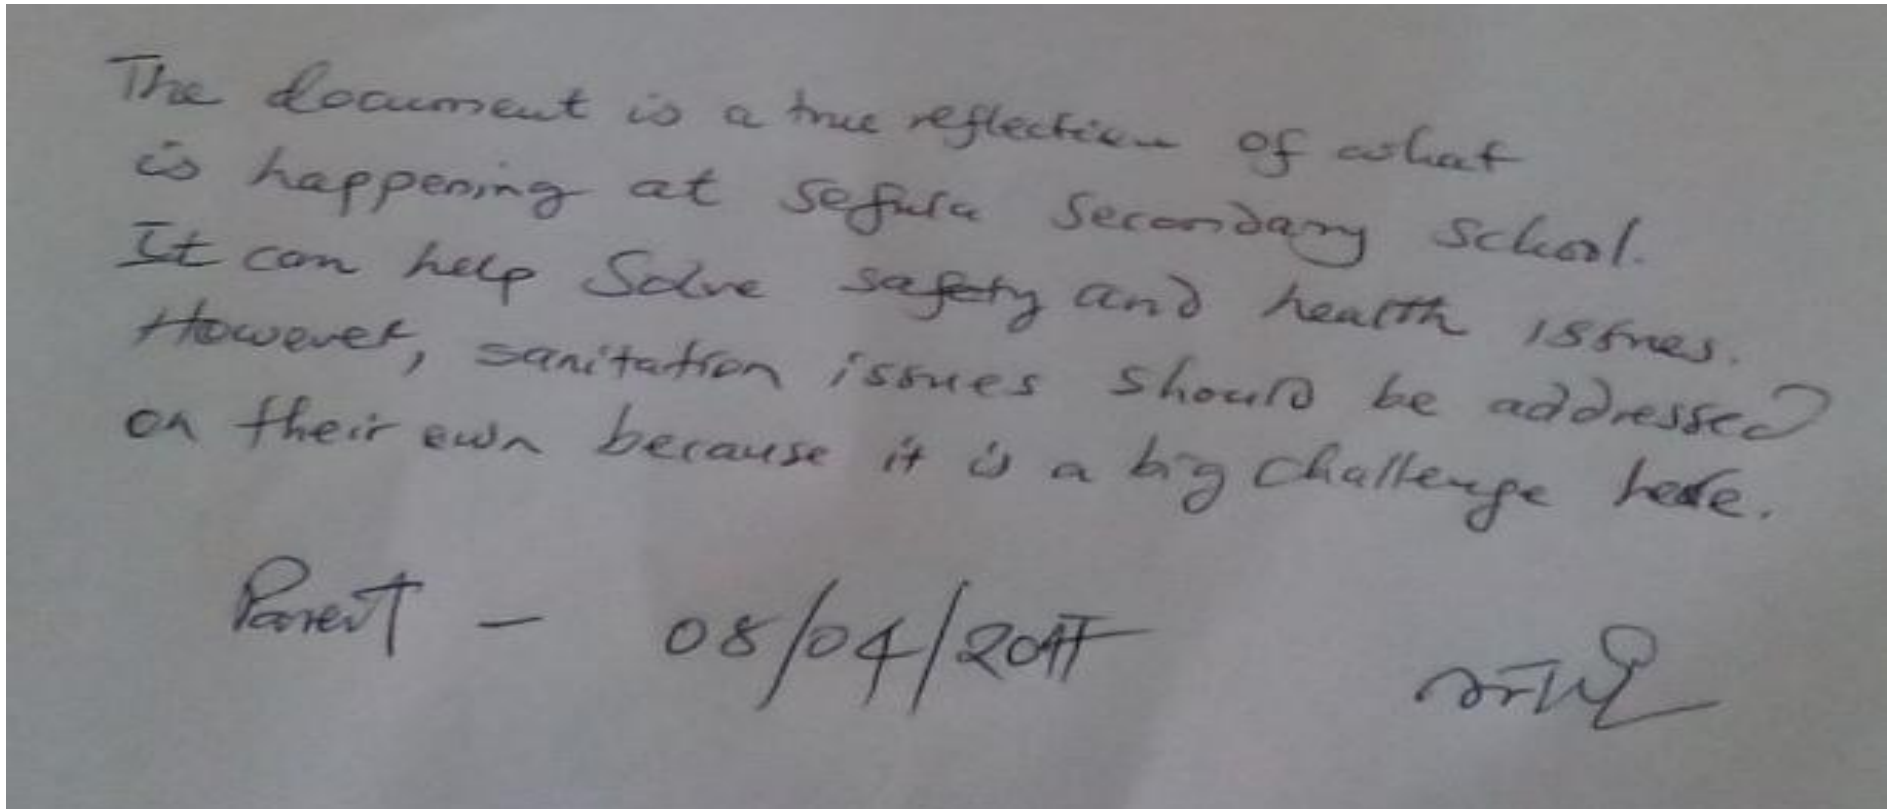 The document is a true reflection of what
is happening at Sefula Secondary School.
It can help Solve safety and health issues.
However, sanitation issues should be addressed
on their own because it is a big challenge here.
Parent - 08/04/2017